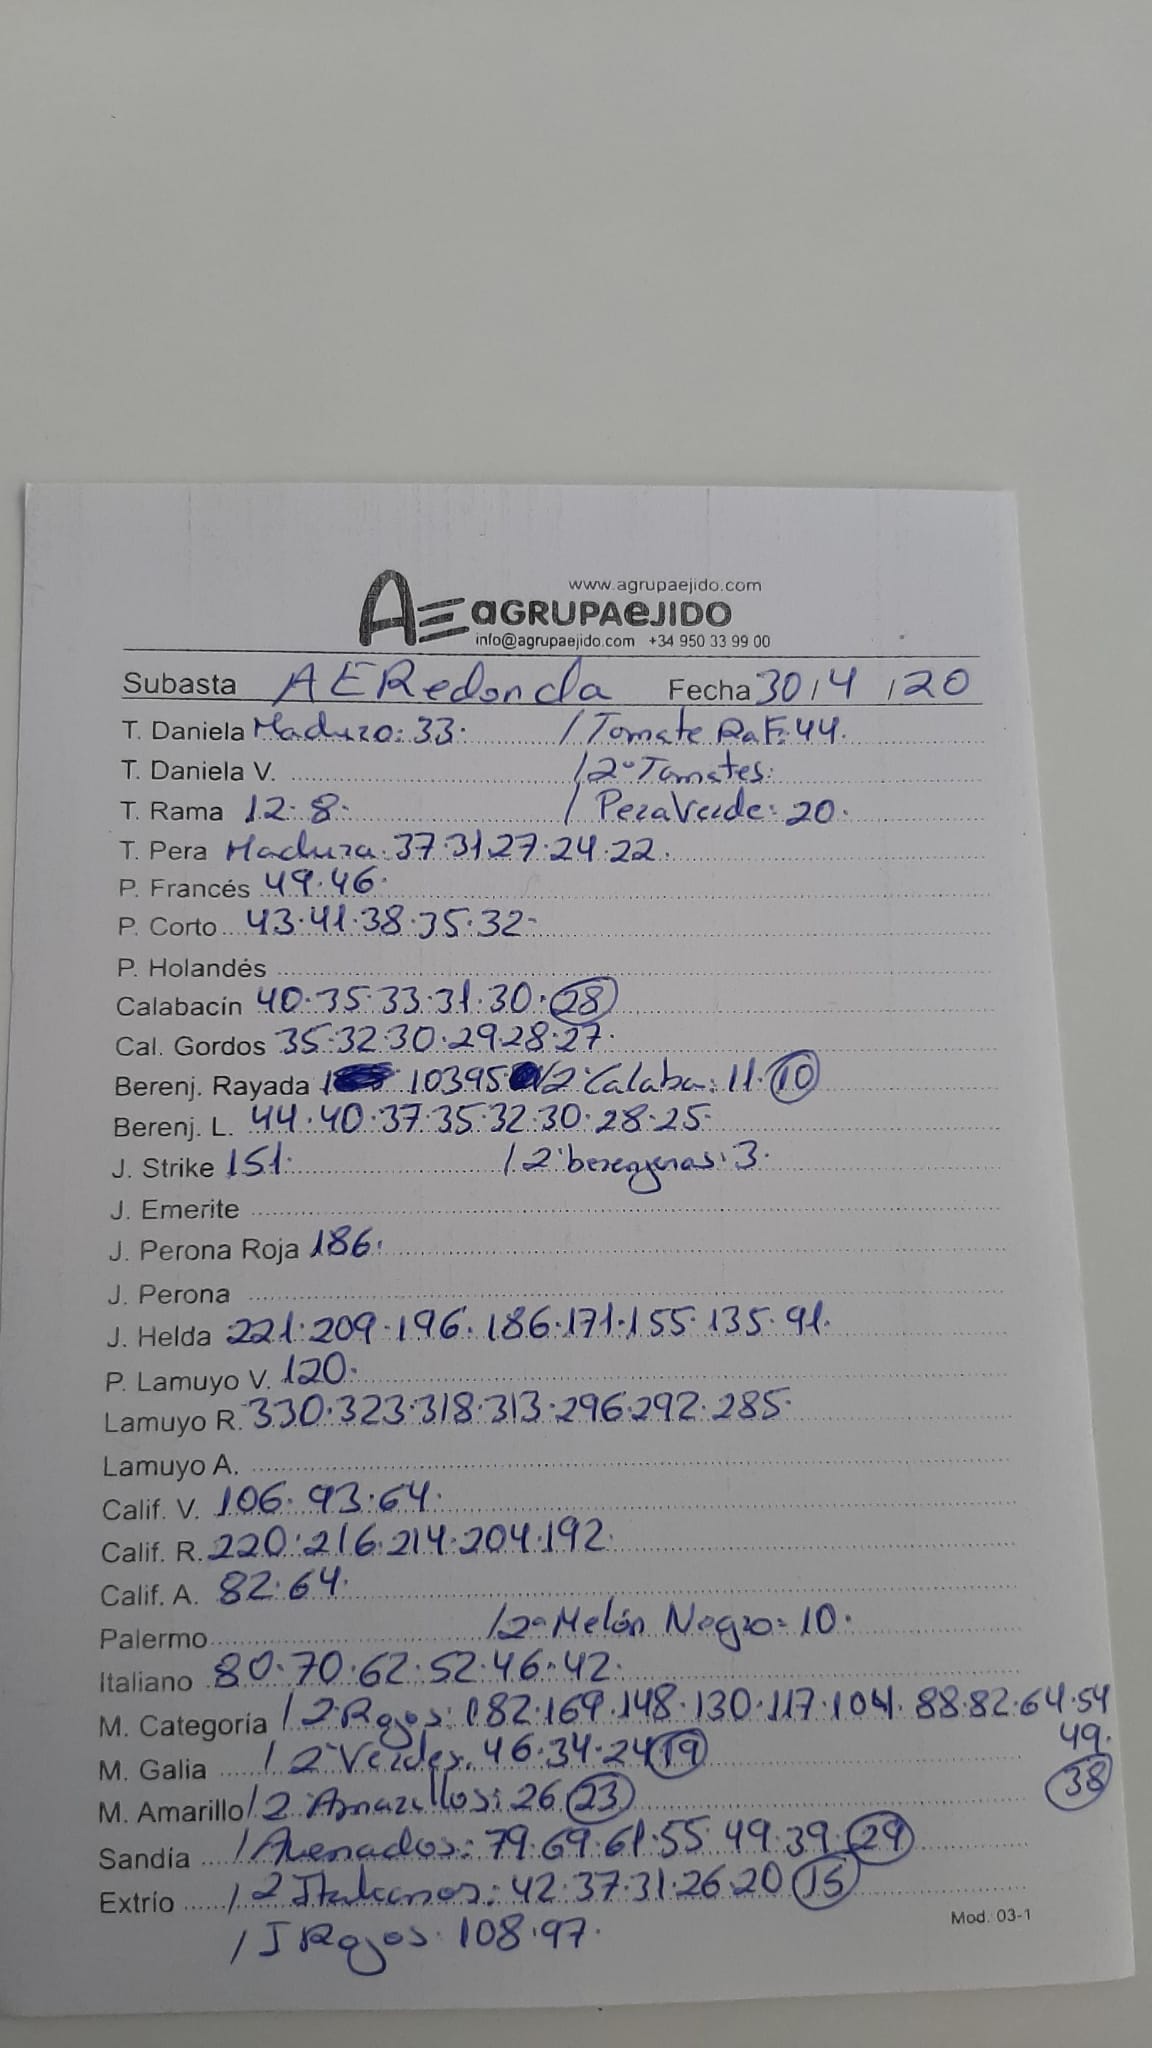 www.agrupaejido.com
AE aGRUPAeJIDO
info@agrupaejido.com +34 950 33 99 00
Subasta AERedonda Fecha 30/4/20
T. Daniela Maduro: 33. / Tomate RaF: 44.
T. Daniela V. / 2º Tomates:
T. Rama 12. 8. / Pera Verde: 20.
T. Pera Madura. 37.31.27.24.22.
P. Francés 49.46.
P. Corto 43.41.38.35.32.
P. Holandés
Calabacín 40.35.33.31.30.28
Cal. Gordos 35.32.30.29.28.27.
Berenj. Rayada 10395 /2º Calaba: 11.10
Berenj. L. 44.40.37.35.32.30.28.25.
J. Strike 151. / 2º berengenas: 3.
J. Emerite
J. Perona Roja 186.
J. Perona
J. Helda 221.209.196.186.171.155.135.91.
P. Lamuyo V. 120.
Lamuyo R. 330.323.318.313.296.292.285.
Lamuyo A.
Calif. V. 106.93.64.
Calif. R. 220.216.214.204.192.
Calif. A. 82.64.
Palermo / 2º Melón Negro: 10.
Italiano 80.70.62.52.46.42.
M. Categoría / 2º Rojos: 182.169.148.130.117.104.88.82.64.54
49.
M. Galia / 2º Verdes: 46.34.24.19
38
M. Amarillo / 2º Amarillos: 26.23
Sandía / Asenados: 79.69.61.55.49.39.29
Extrío / 2 Italianos: 42.37.31.26.20.15
/ I Rojos: 108.97.
Mod. 03-1